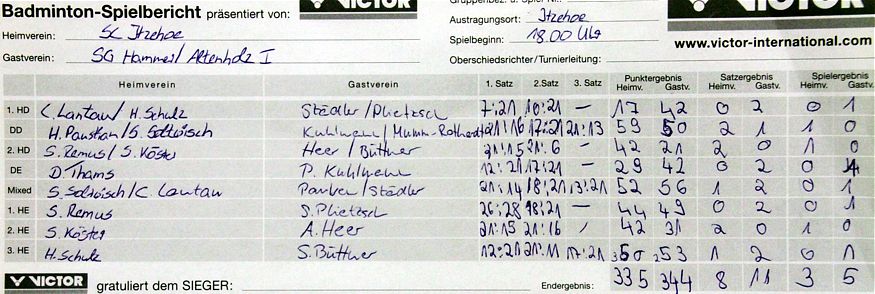 Badminton-Spielbericht präsentiert von: VICTOR
Gruppenbez. u. Spiel Nr.:
VICTOR
Austragungsort: Itzehoe
Heimverein: SC Itzehoe
Spielbeginn: 18.00 Uhr
www.victor-international.com
Gastverein: SG Hammer/Altenholz I
Oberschiedsrichter/Turnierleitung:
Heimverein Gastverein 1. Satz 2. Satz 3. Satz Punktergebnis Satzergebnis Spielergebnis
Heimv. Gastv. Heimv. Gastv. Heimv. Gastv.
1. HD C. Lantau/H. Schulz Städler/Plietzsch 7:21 10:21 — 17 42 0 2 0 1
DD H. Paustian/S. Kuhlwein/Mumm- 21:16 17:21 21:13 59 50 2 1 1 0
2. HD S. Remus/S. Köster Heer/Büttner 21:15 21:6 — 42 21 2 0 1 0
DE D. Thams P. Kuhlwein 12:21 17:21 — 29 42 0 2 0 1
Mixed /C. Lantau /Städler 21:14 18:21 13:21 52 56 1 2 0 1
1. HE S. Remus S. Plietzsch 26:28 18:21 — 44 49 0 2 0 1
2. HE S. Köster A. Heer 21:15 21:16 / 42 31 2 0 1 0
3. HE H. Schulz S. Büttner 12:21 21:11 17:21 50 53 1 2 0 1
VICTOR gratuliert dem SIEGER: Endergebnis: 335 344 8 11 3 5